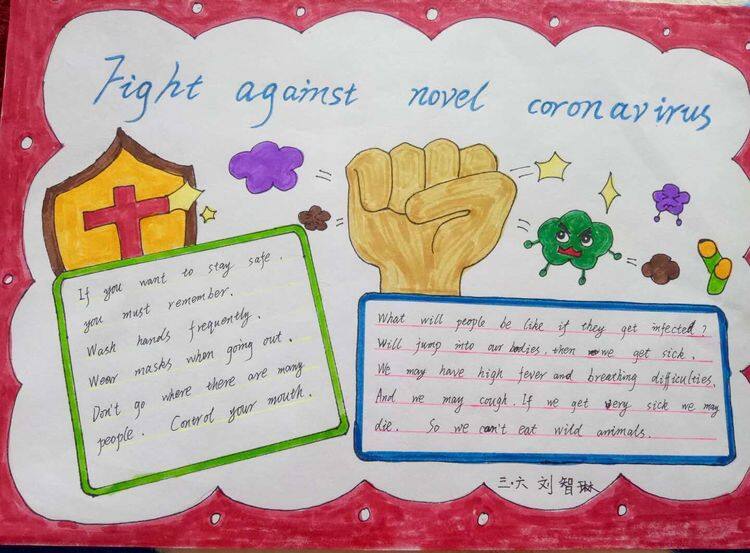 Fight against novel coronavirus
If you want to stay safe,
you must remember.
Wash hands frequently.
Wear masks when going out.
Don't go where there are many
people. Control your mouth.
What will people be like if they get infected?
Will jump into our bodies, then we get sick.
We may have high fever and breathing difficulties.
And we may cough. If we get very sick we may
die. So we can't eat wild animals.
三·六 刘智琳